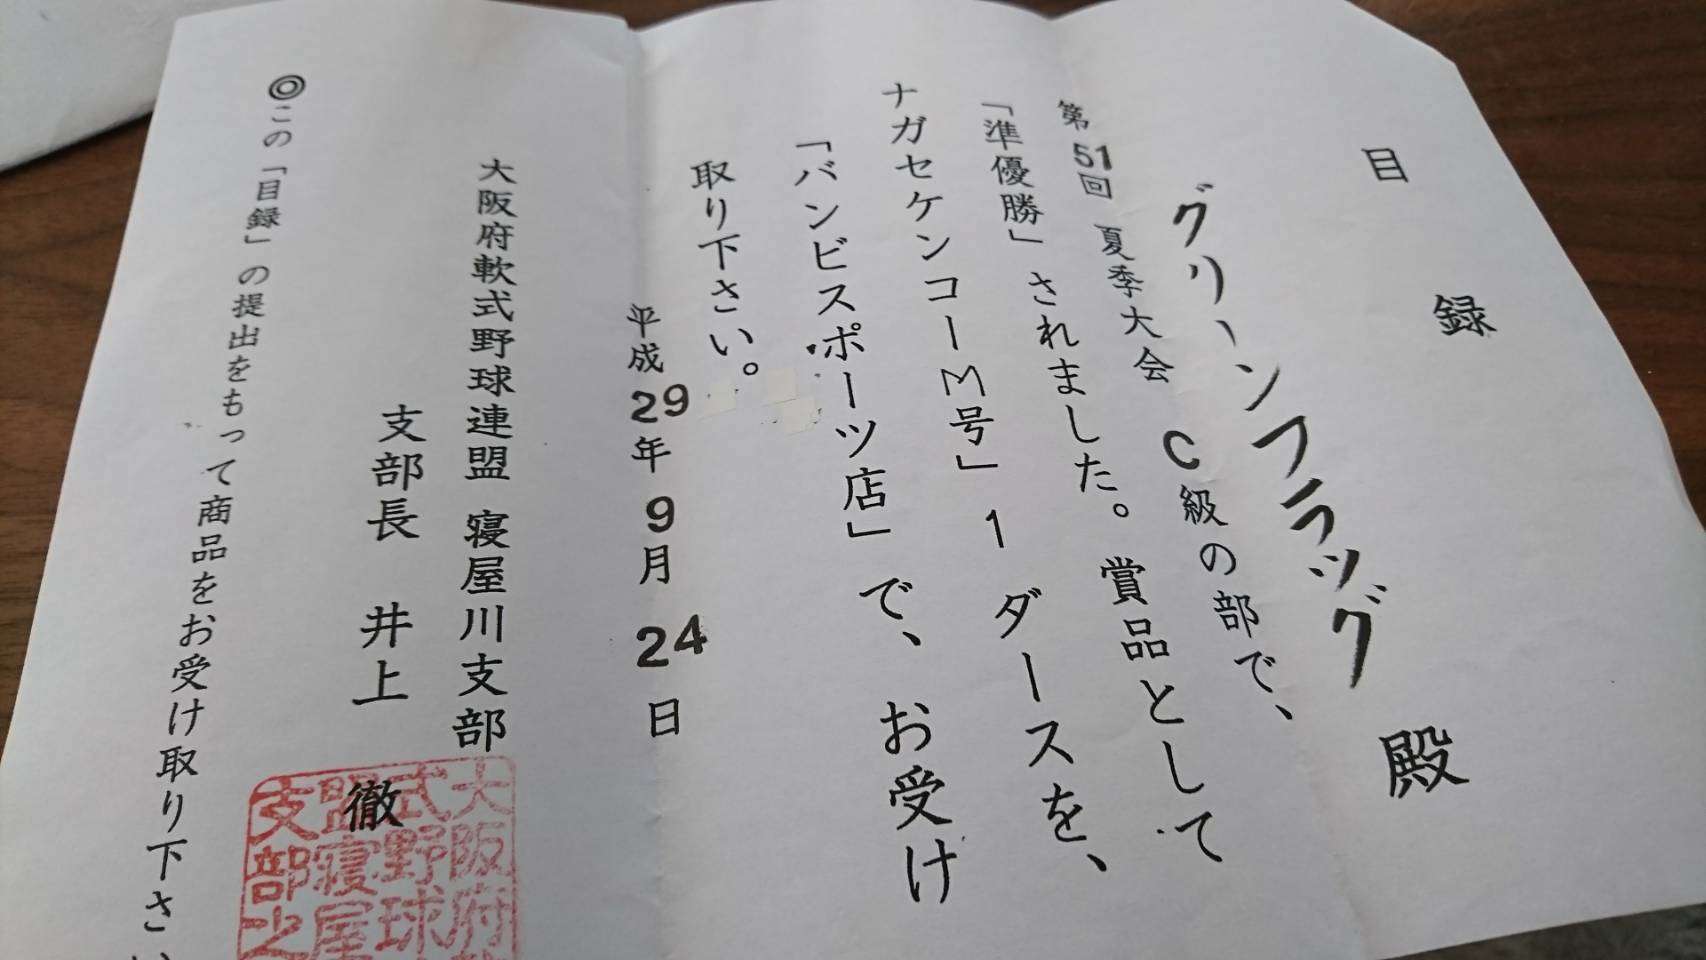 目録
グリーンフラッグ 殿
第51回 夏季大会 C級の部で、
「準優勝」されました。賞品として
ナガセケンコーM号」1ダースを、
「バンビスポーツ店」で、お受け
取り下さい。
平成29年9月24日
大阪府軟式野球連盟 寝屋川支部
支部長 井上 徹
大阪府
式野球
盟寝屋
支部之
◎この「目録」の提出をもって商品をお受け取り下さい